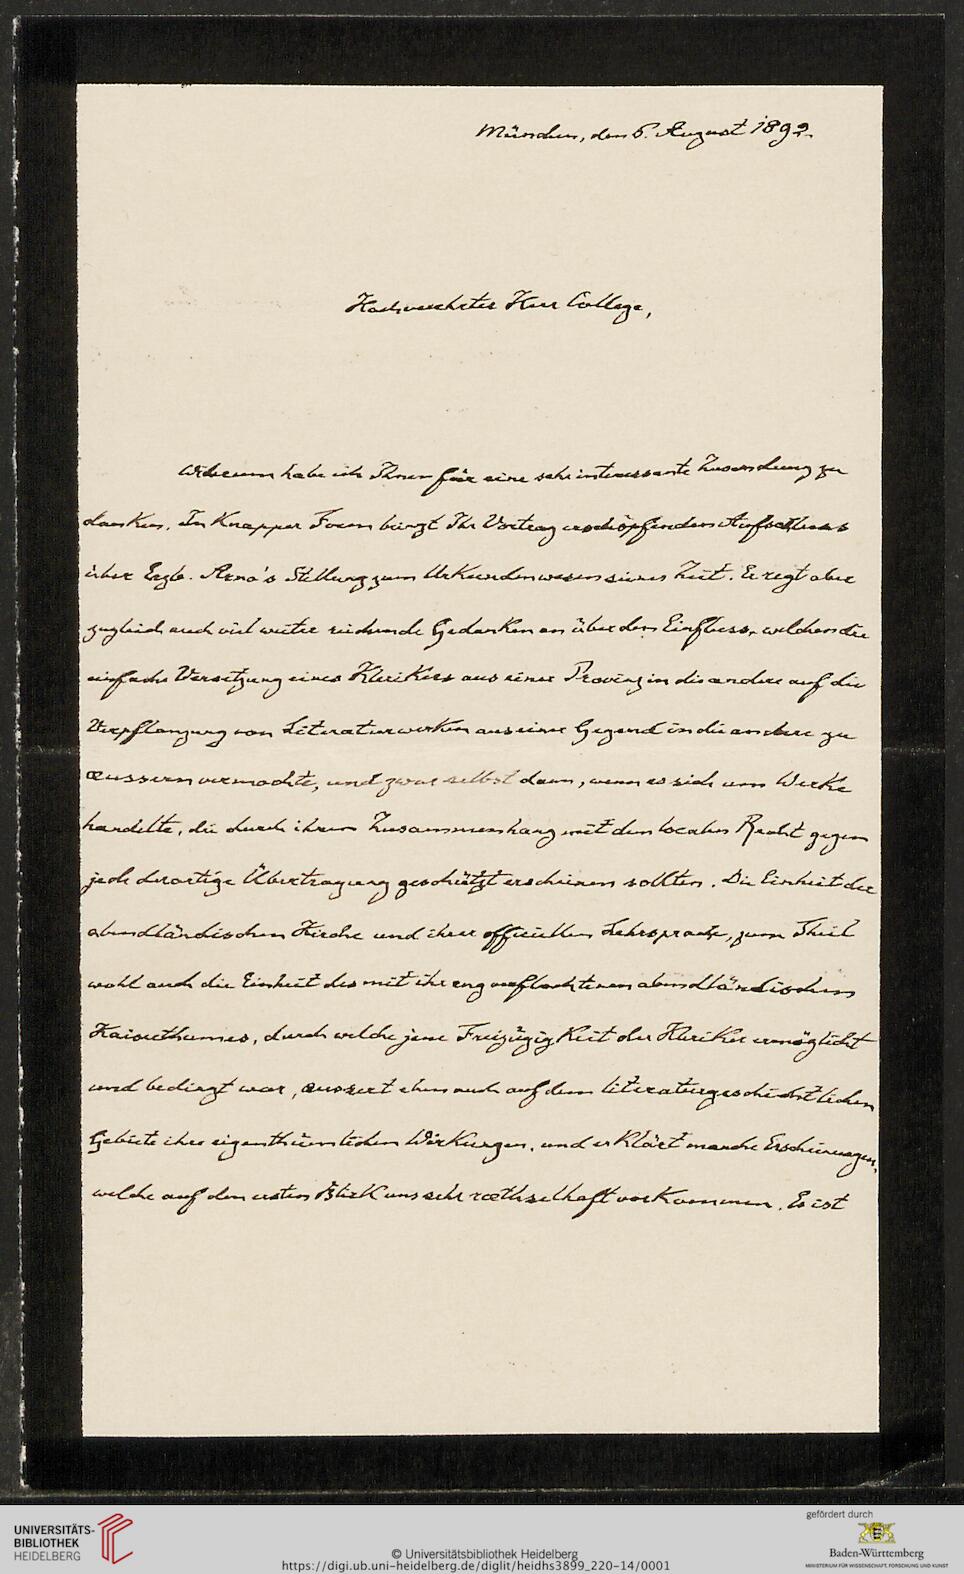 München, den 6. August 1892.
Hochverehrter Herr College,
Wiederum habe ich Ihnen für eine sehr interessante Zusendung zu
danken. In Knapper Form bringt Ihr Vortrag erschöpfenden Aufschluss
über Erzb. Arno's Stellung zum Urkundenwesen seiner Zeit. Er regt aber
zugleich auch viel weiter reichende Gedanken an über den Einfluss, welchen die
einfache Versetzung eines Klerikers aus einer Provinz in die andere auf die
Verpflanzung von Literaturwerken aus einer Gegend in die andere zu
æussern vermochte, und zwar selbst dann, wenn es sich um Werke
handelte, die durch ihren Zusammenhang mit dem localen Recht gegen
jede derartige Übertragung geschützt erscheinen sollten. Die Einheit der
abendländischen Kirche und ihrer officiellen Sprache, zum Theil
wohl auch die Einheit des mit ihr eng verflochtenen abendländischen
Kaiserthumes, durch welche jene Freizügigkeit der Kleriker ermöglicht
und bedingt war, æussert eben auch auf dem literaturgeschichtlichen
Gebiete ihre eigenthümlichen Wirkungen, und erklärt manche Erscheinungen,
welche auf den ersten Blick uns sehr ræthselhaft vorkommen. Es ist
UNIVERSITÄTS-
BIBLIOTHEK
HEIDELBERG
© Universitätsbibliothek Heidelberg
https://digi.ub.uni-heidelberg.de/diglit/heidhs3899_220-14/0001
gefördert durch
Baden-Württemberg
MINISTERIUM FÜR WISSENSCHAFT, FORSCHUNG UND KUNST